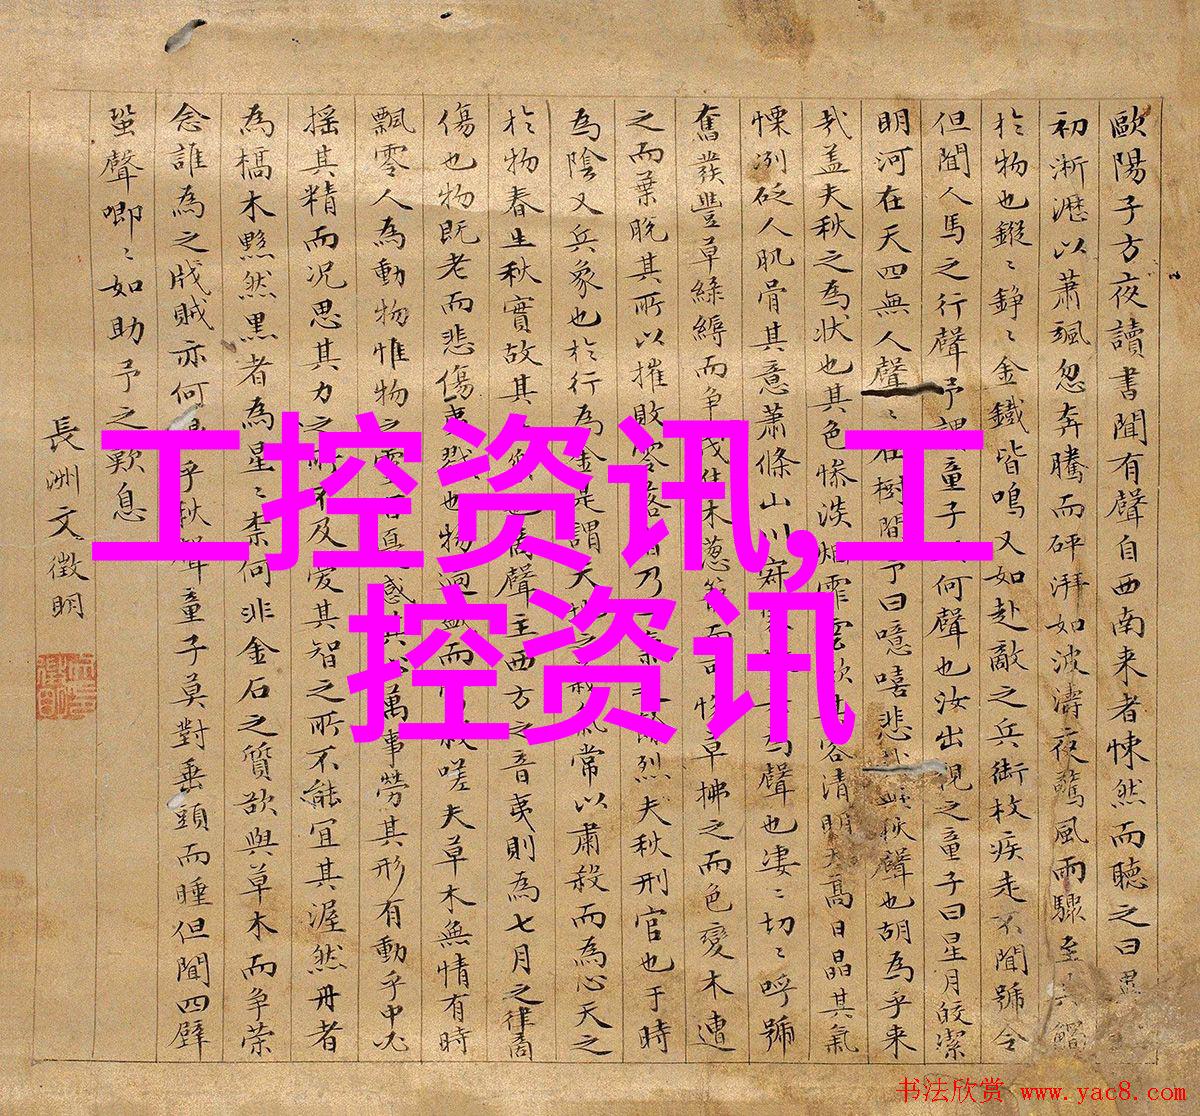 歐陽子方夜讀書聞有聲自西南来者悚然而聽之曰
初淅瀝以蕭颯忽奔騰而砰湃如波濤夜驚風雨驟至
於物也鏦〻錚〻金鐵皆鳴又如赴敵之兵銜枚疾走不聞號令
但聞人馬之行聲予謂童子何聲也汝出視之童子曰星月皎潔
明河在天四無人聲〻在樹間予曰噫嘻悲秋聲也胡為乎来
哉盖夫秋之為狀也其色惨淡烟霏雲歛其容清明天高日晶其氣
慄洌砭人肌骨其意蕭條山川寂為聲也凄〻切〻呼號
奮發豐草綠縟而争茂佳木葱而可悦草拂之而色變木遭
之而葉脱其所以摧敗零落者乃一烈夫秋刑官也于時
為陰又兵象也於行為金是謂天常以肅殺而為心天之
於物春生秋實故其也商聲主西方之音夷則為七月之律商
傷也物既老而悲傷夷戮也物過盛而殺嗟夫草木無情有時
飄零人為動物惟物之靈百感其萬事勞其形有動乎中必
揺其精而况思其力之所不及憂其智之所不能宜其渥然丹者
為槁木黟然黒者為星〻柰何非金石之質欲與草木而争荣
念誰為之戕賊亦何乎秋聲童子莫對垂頭而睡但聞四壁
蛩聲唧〻如助予之歎息
長洲文徵明
工控资讯,工
控资讯
书法欣赏 www.yac8.com